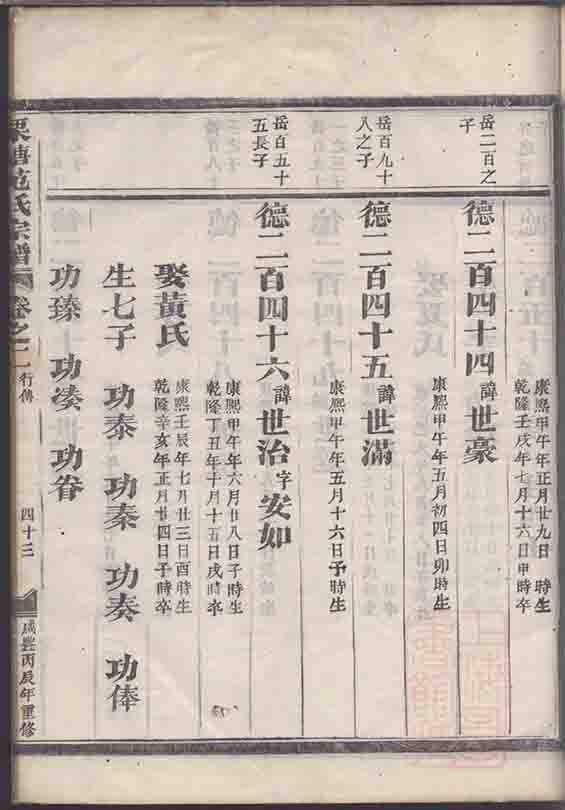 康熙甲午年正月廿九日　時生
乾隆壬戌年七月十六日甲時卒
岳二百之
子
德二百四十四諱世豪
康熙甲午年五月初四日卯時生
岳百九十
八之子
德二百四十五諱世滿
康熙甲午年五月十六日子時生
岳百五十
五長子
德二百四十六諱世治字安如
康熙甲午年六月廿八日子時生
乾隆丁丑年十月十五日戌時卒
娶黃氏
康熙壬辰年七月廿三日酉時生
乾隆辛亥年正月廿四日子時卒
生七子　功泰　功秦　功奏　功俸
功臻　功湊　功眷
栗塘范氏宗譜　卷之二　行傳　四十三　咸豐丙辰年重修